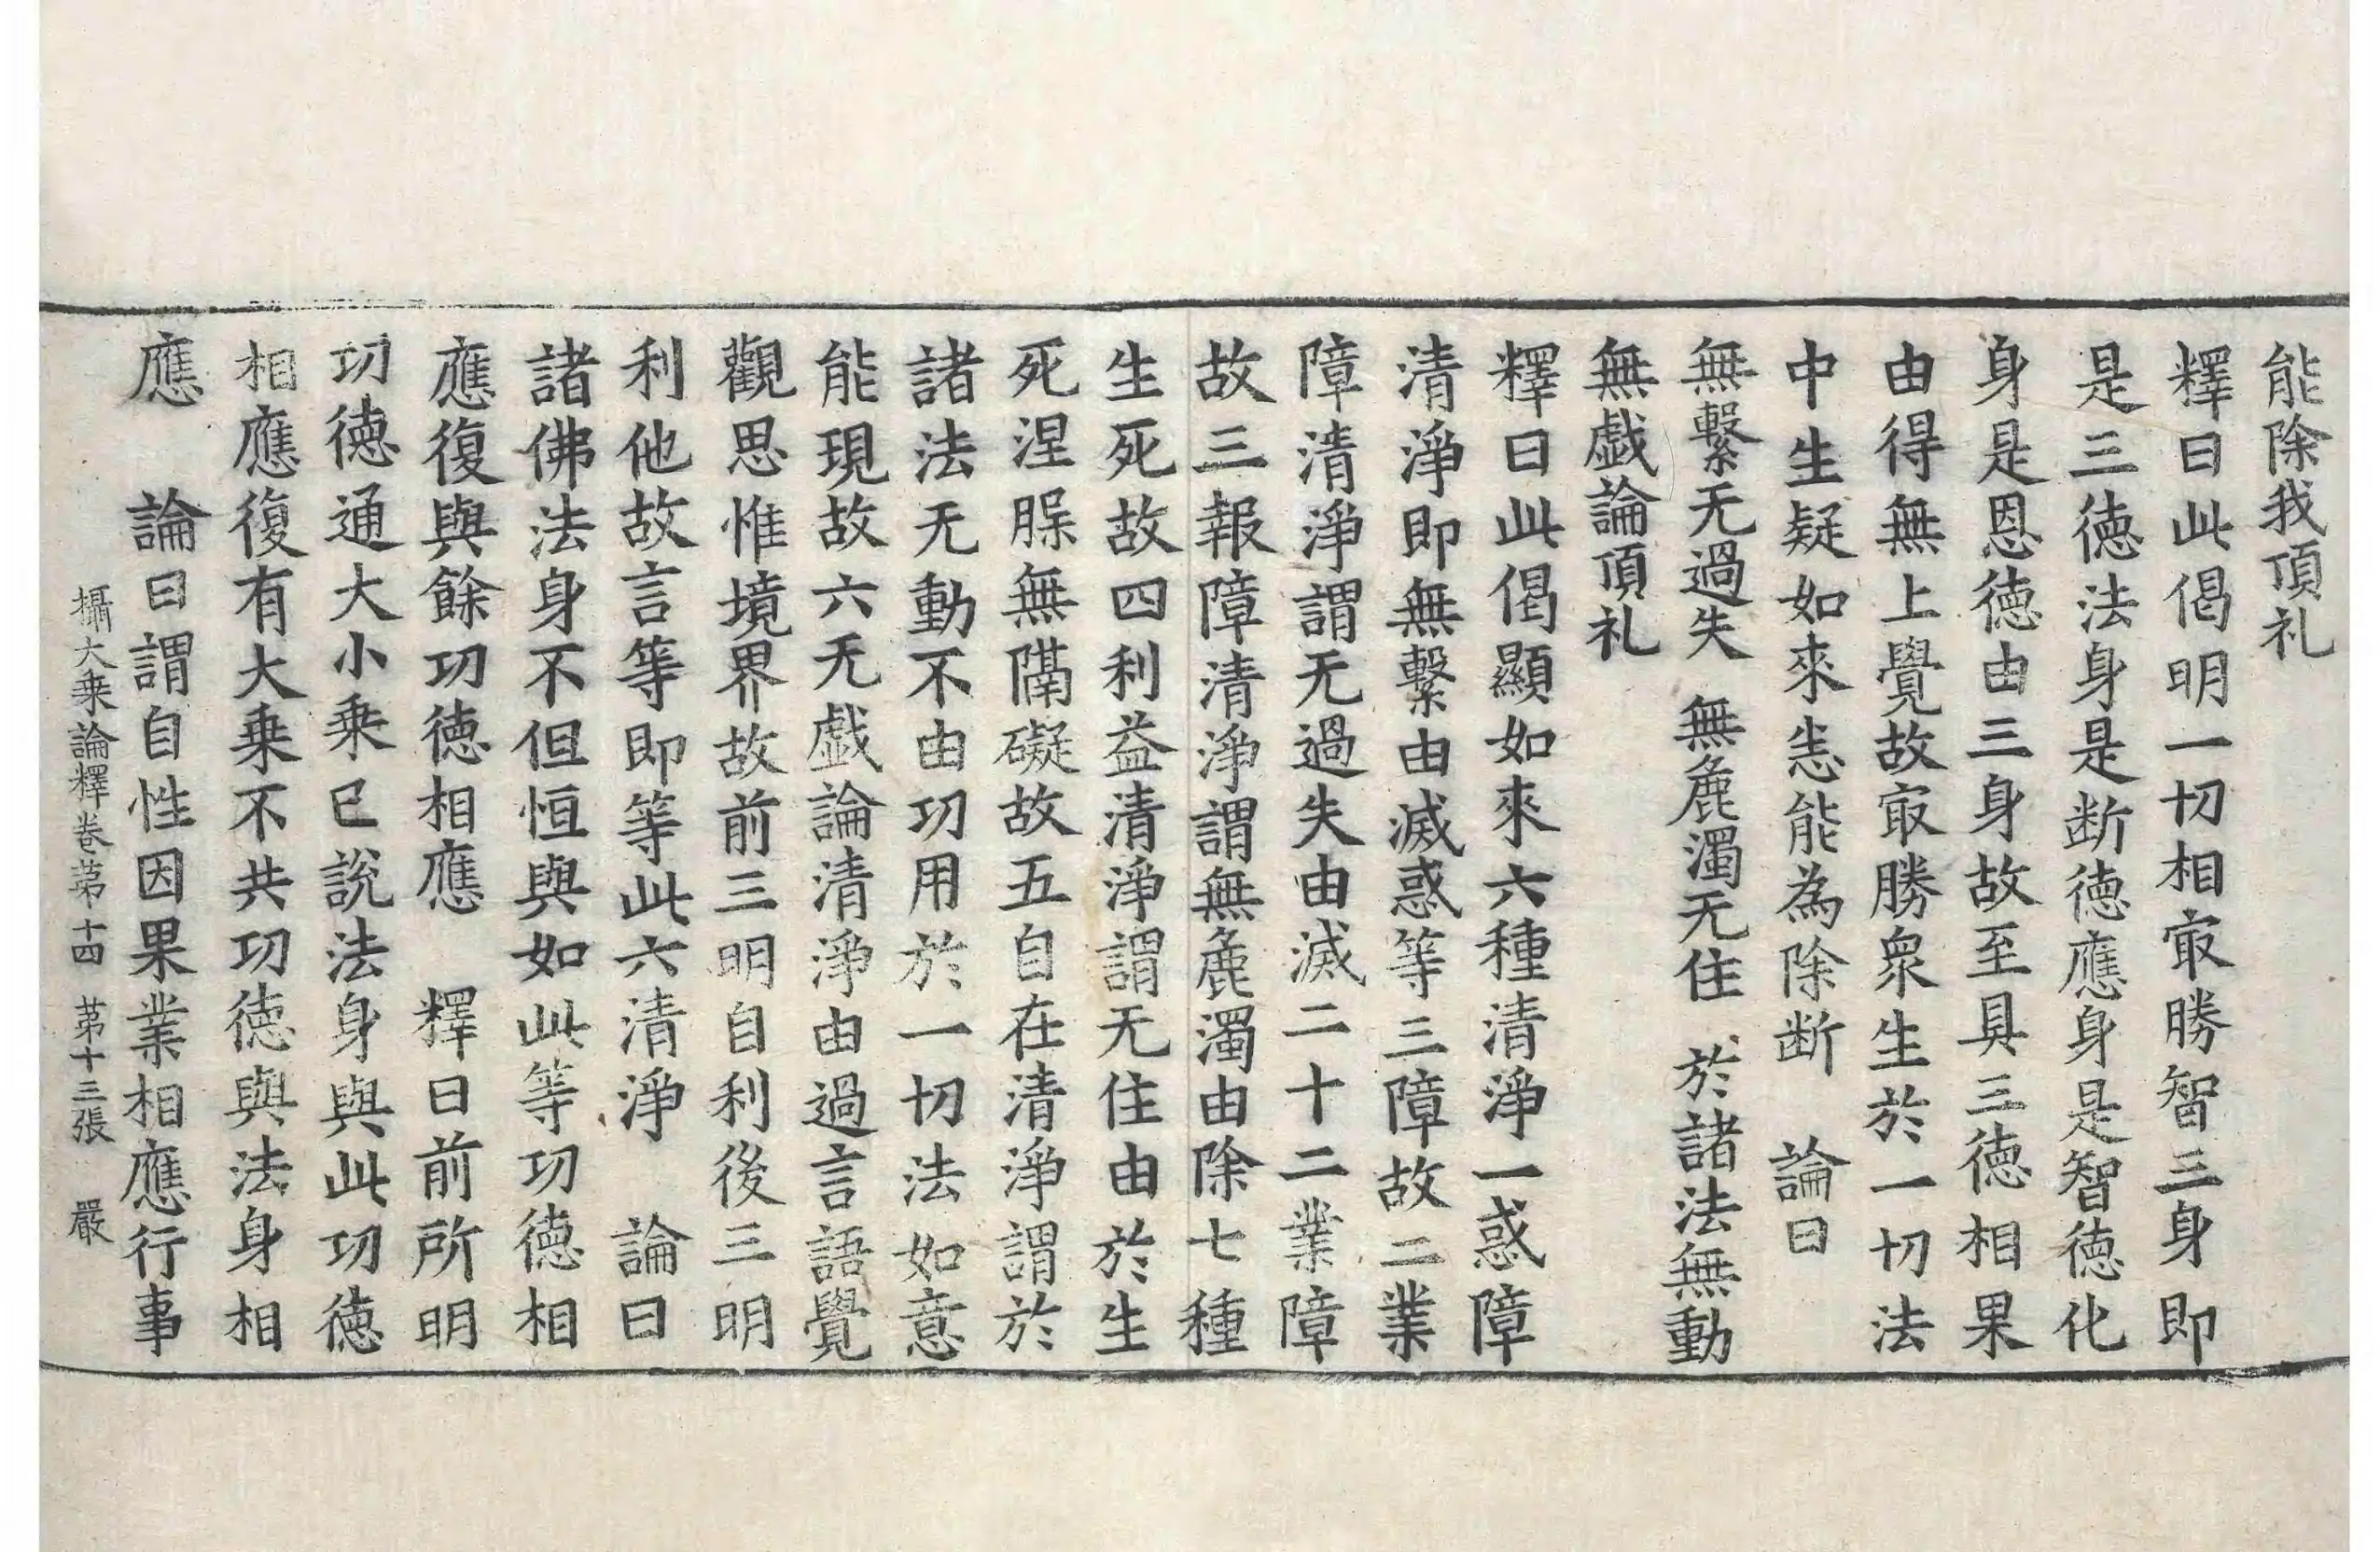 能除我頂礼
釋曰此偈明一切相㝡勝智三身即
是三徳法身是断徳應身是智徳化
身是恩徳由三身故至具三徳相果
由得無上覺故㝡勝衆生於一切法
中生疑如來恙能為除断　論曰
無繋无過失　無麁濁无住　於諸法無動
無戯論頂礼
釋曰此偈顯如來六種清淨一惑障
清淨即無繋由滅惑等三障故二業
障清淨謂无過失由滅二十二業障
故三報障清淨謂無麁濁由除七種
生死故四利益清淨謂无住由於生
死涅脵無隔礙故五自在清淨謂於
諸法无動不由功用於一切法如意
能現故六无戯論清淨由過言語覺
觀思惟境界故前三明自利後三明
利他故言等即等此六清淨　論曰
諸佛法身不但恒與如此等功徳相
應復與餘功徳相應　釋曰前所明
功徳通大小乗已說法身與此功徳
相應復有大乗不共功徳與法身相
應　論曰謂自性因果業相應行事
攝大乗論釋卷苐十四　苐十三張　嚴